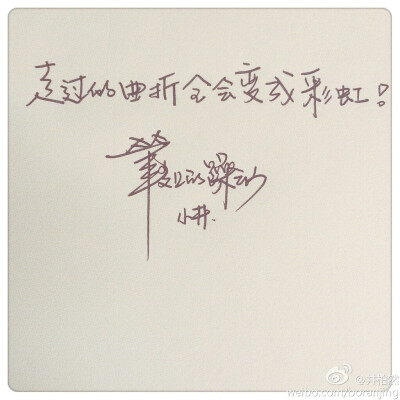 走过的曲折全会变成彩虹！
小井.
@井柏然
weibo.com/boranjing